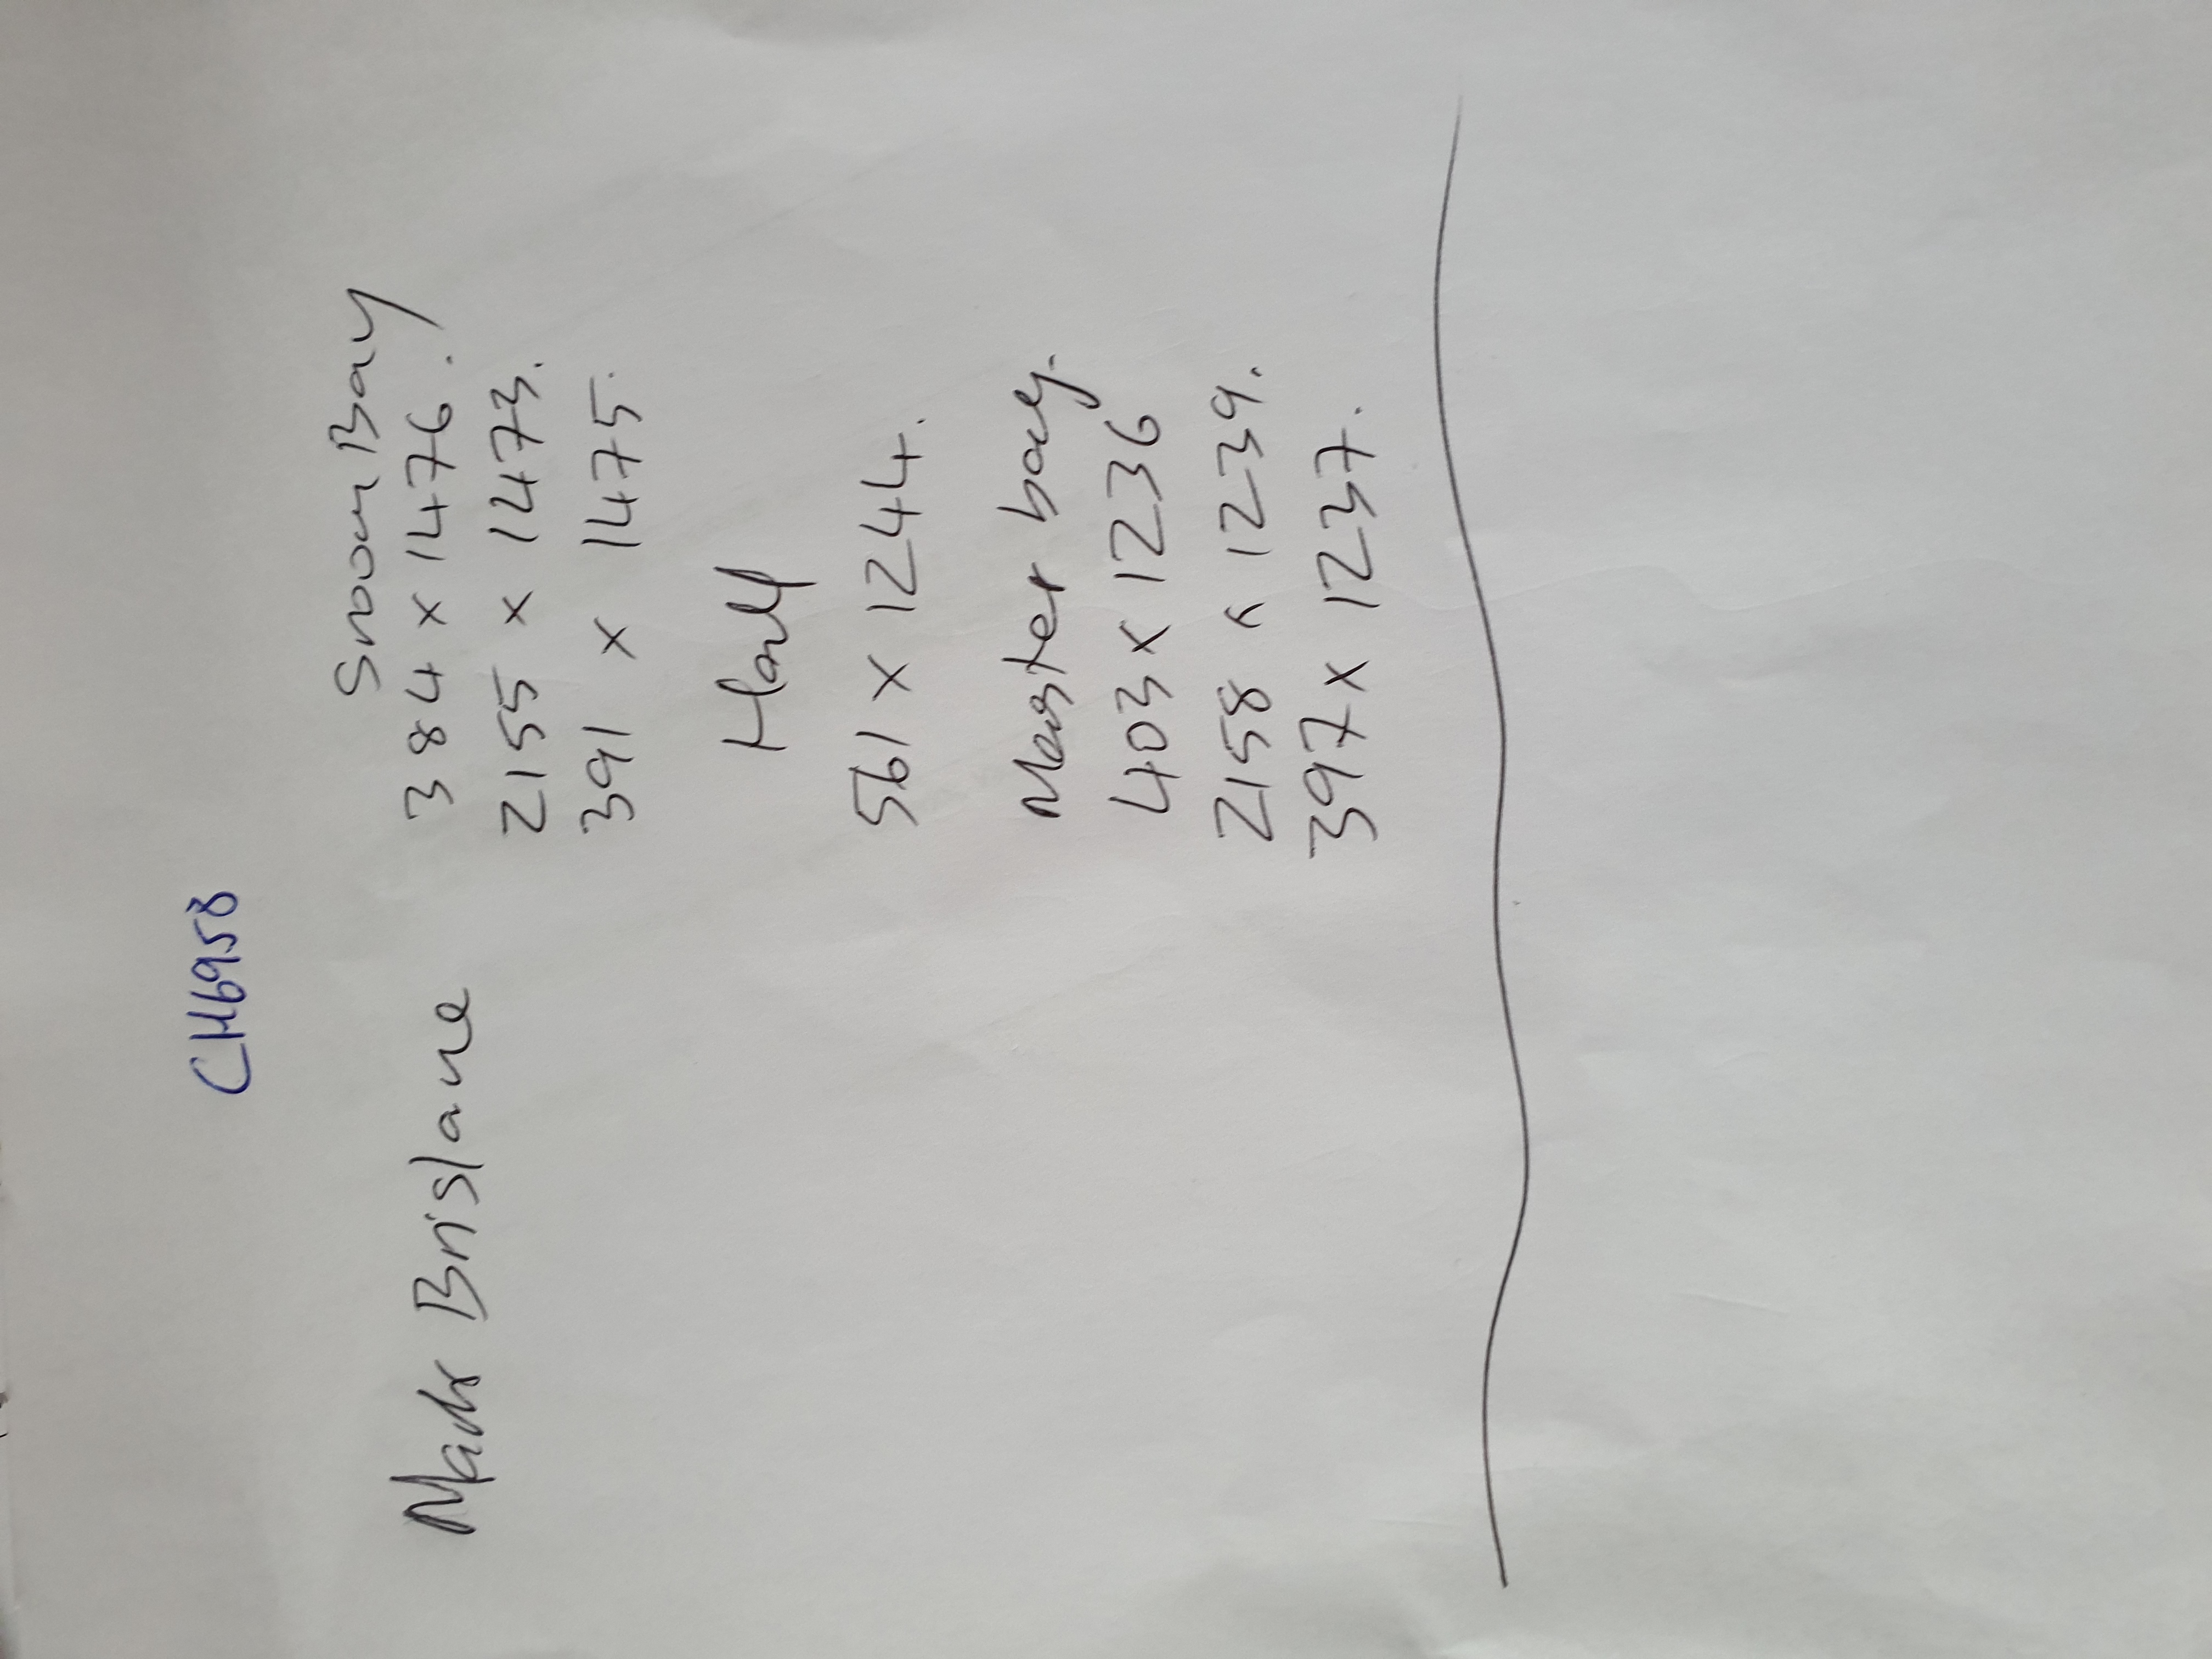 CH6958
Mark Brislane
Snoour Bay
384 x 1476.
2155 x 1473.
391 x 1475.
Hall
561 x 1244.
Master bay.
403 x 1236
2158 x 1239.
397 x 1237.